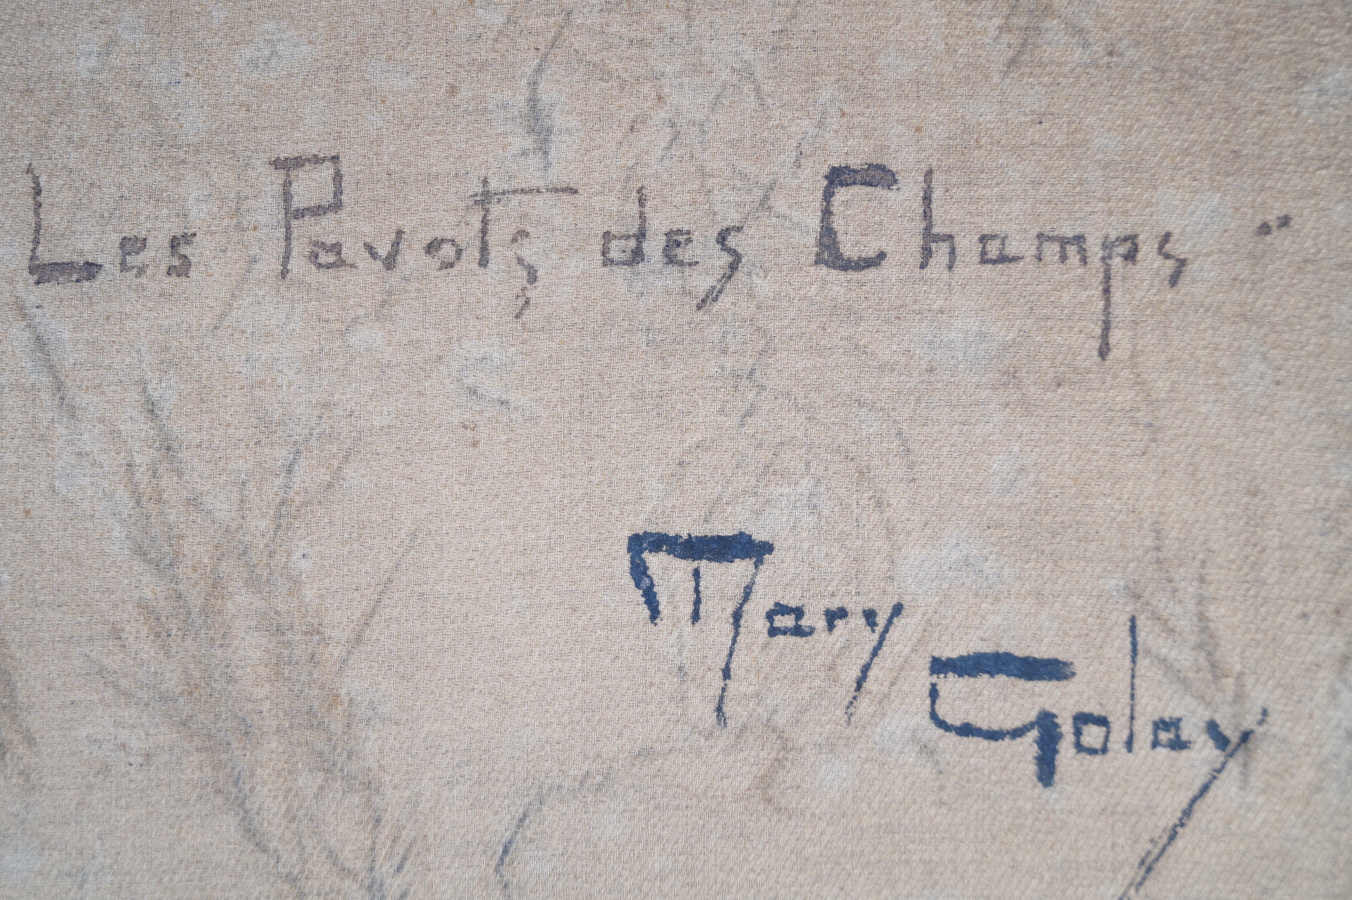 Les Pavots des Champs "
Mary
Golay